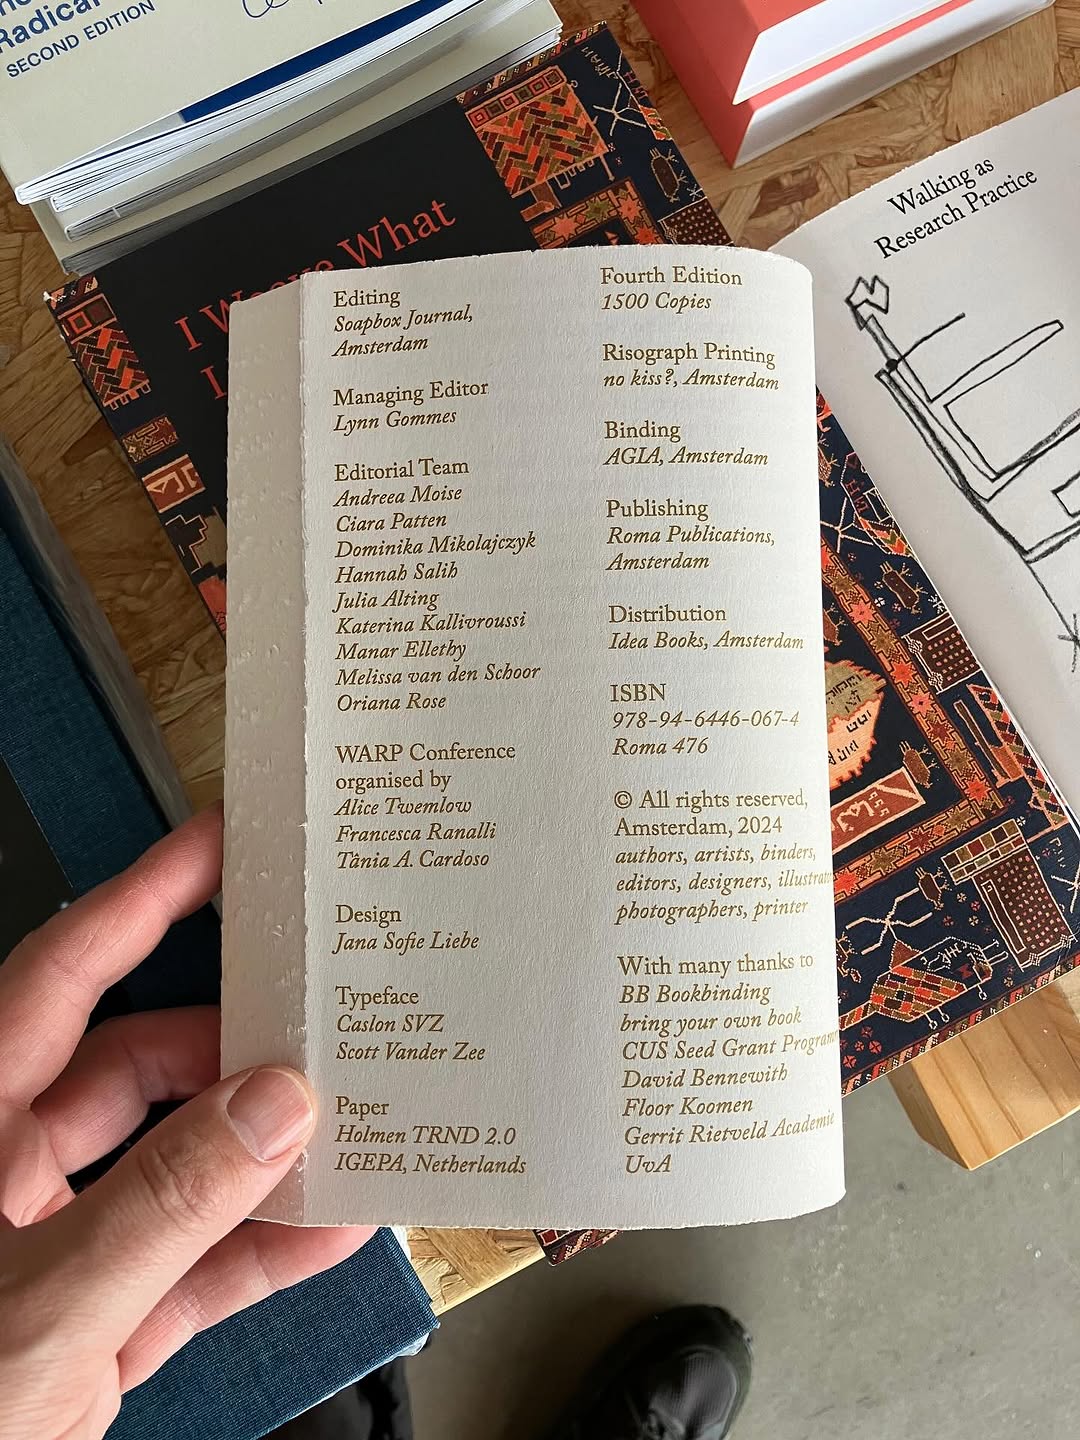 Radical
SECOND EDITION
I Weave What
Walking as
Research Practice
Editing
Soapbox Journal,
Amsterdam
Managing Editor
Lynn Gommes
Editorial Team
Andreea Moise
Ciara Patten
Dominika Mikolajczyk
Hannah Salih
Julia Alting
Katerina Kallivroussi
Manar Ellethy
Melissa van den Schoor
Oriana Rose
WARP Conference
organised by
Alice Twemlow
Francesca Ranalli
Tânia A. Cardoso
Design
Jana Sofie Liebe
Typeface
Caslon SVZ
Scott Vander Zee
Paper
Holmen TRND 2.0
IGEPA, Netherlands
Fourth Edition
1500 Copies
Risograph Printing
no kiss?, Amsterdam
Binding
AGIA, Amsterdam
Publishing
Roma Publications,
Amsterdam
Distribution
Idea Books, Amsterdam
ISBN
978-94-6446-067-4
Roma 476
© All rights reserved,
Amsterdam, 2024
authors, artists, binders,
editors, designers, illustrat
photographers, printer
With many thanks to
BB Bookbinding
bring your own book
CUS Seed Grant Program
David Bennewith
Floor Koomen
Gerrit Rietveld Academie
UvA